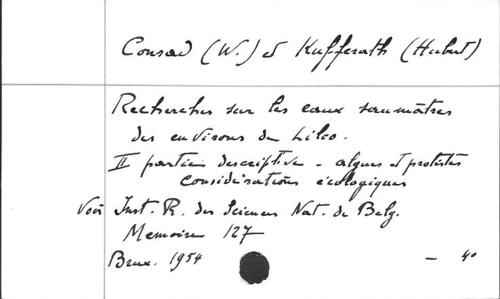 Conrad (W.) et Kufferath (Hubert)
Recherches sur les eaux saumâtres
des environs de Lilloo.
II partie descriptive - algues et protistes
considérations écologiques
Voir Inst. R. des Sciences Nat. de Belg.
Memoire 127
Brux. 1954 - 40